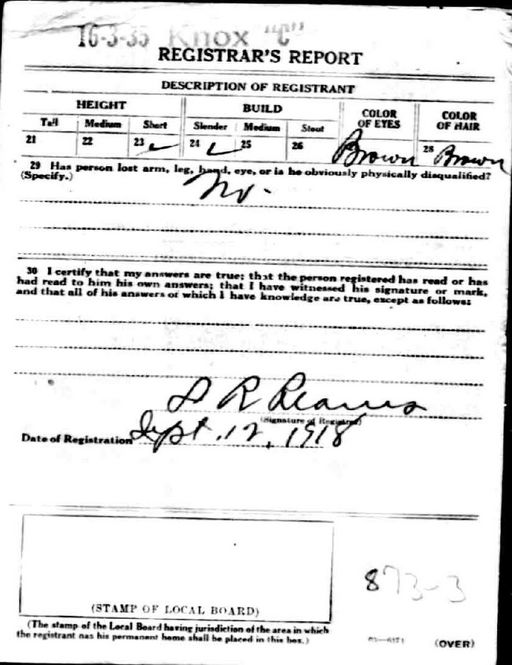 16-3-35 Knox "C"
REGISTRAR'S REPORT
DESCRIPTION OF REGISTRANT
HEIGHT BUILD COLOR OF EYES COLOR OF HAIR
Tall Medium Short Slender Medium Stout
21 22 23 ✓ 24 ✓ 25 26 Brown 28 Brown
29 Has person lost arm, leg, hand, eye, or is he obviously physically disqualified?
(Specify.) No.
30 I certify that my answers are true; that the person registered has read or has
had read to him his own answers; that I have witnessed his signature or mark,
and that all of his answers of which I have knowledge are true, except as follows:
R Reams
(Signature of Registrar)
Date of Registration Sept. 12, 1918
873-3
(STAMP OF LOCAL BOARD)
(The stamp of the Local Board having jurisdiction of the area in which
the registrant has his permanent home shall be placed in this box.)
(OVER)